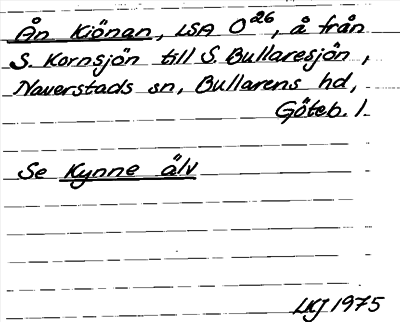 Ån Kiönan, LSA O26, å från
S. Kornsjön till S. Bullaresjön,
Naverstads sn, Bullarens hd,
Göteb. l.
Se Kynne älv
LKJ 1975